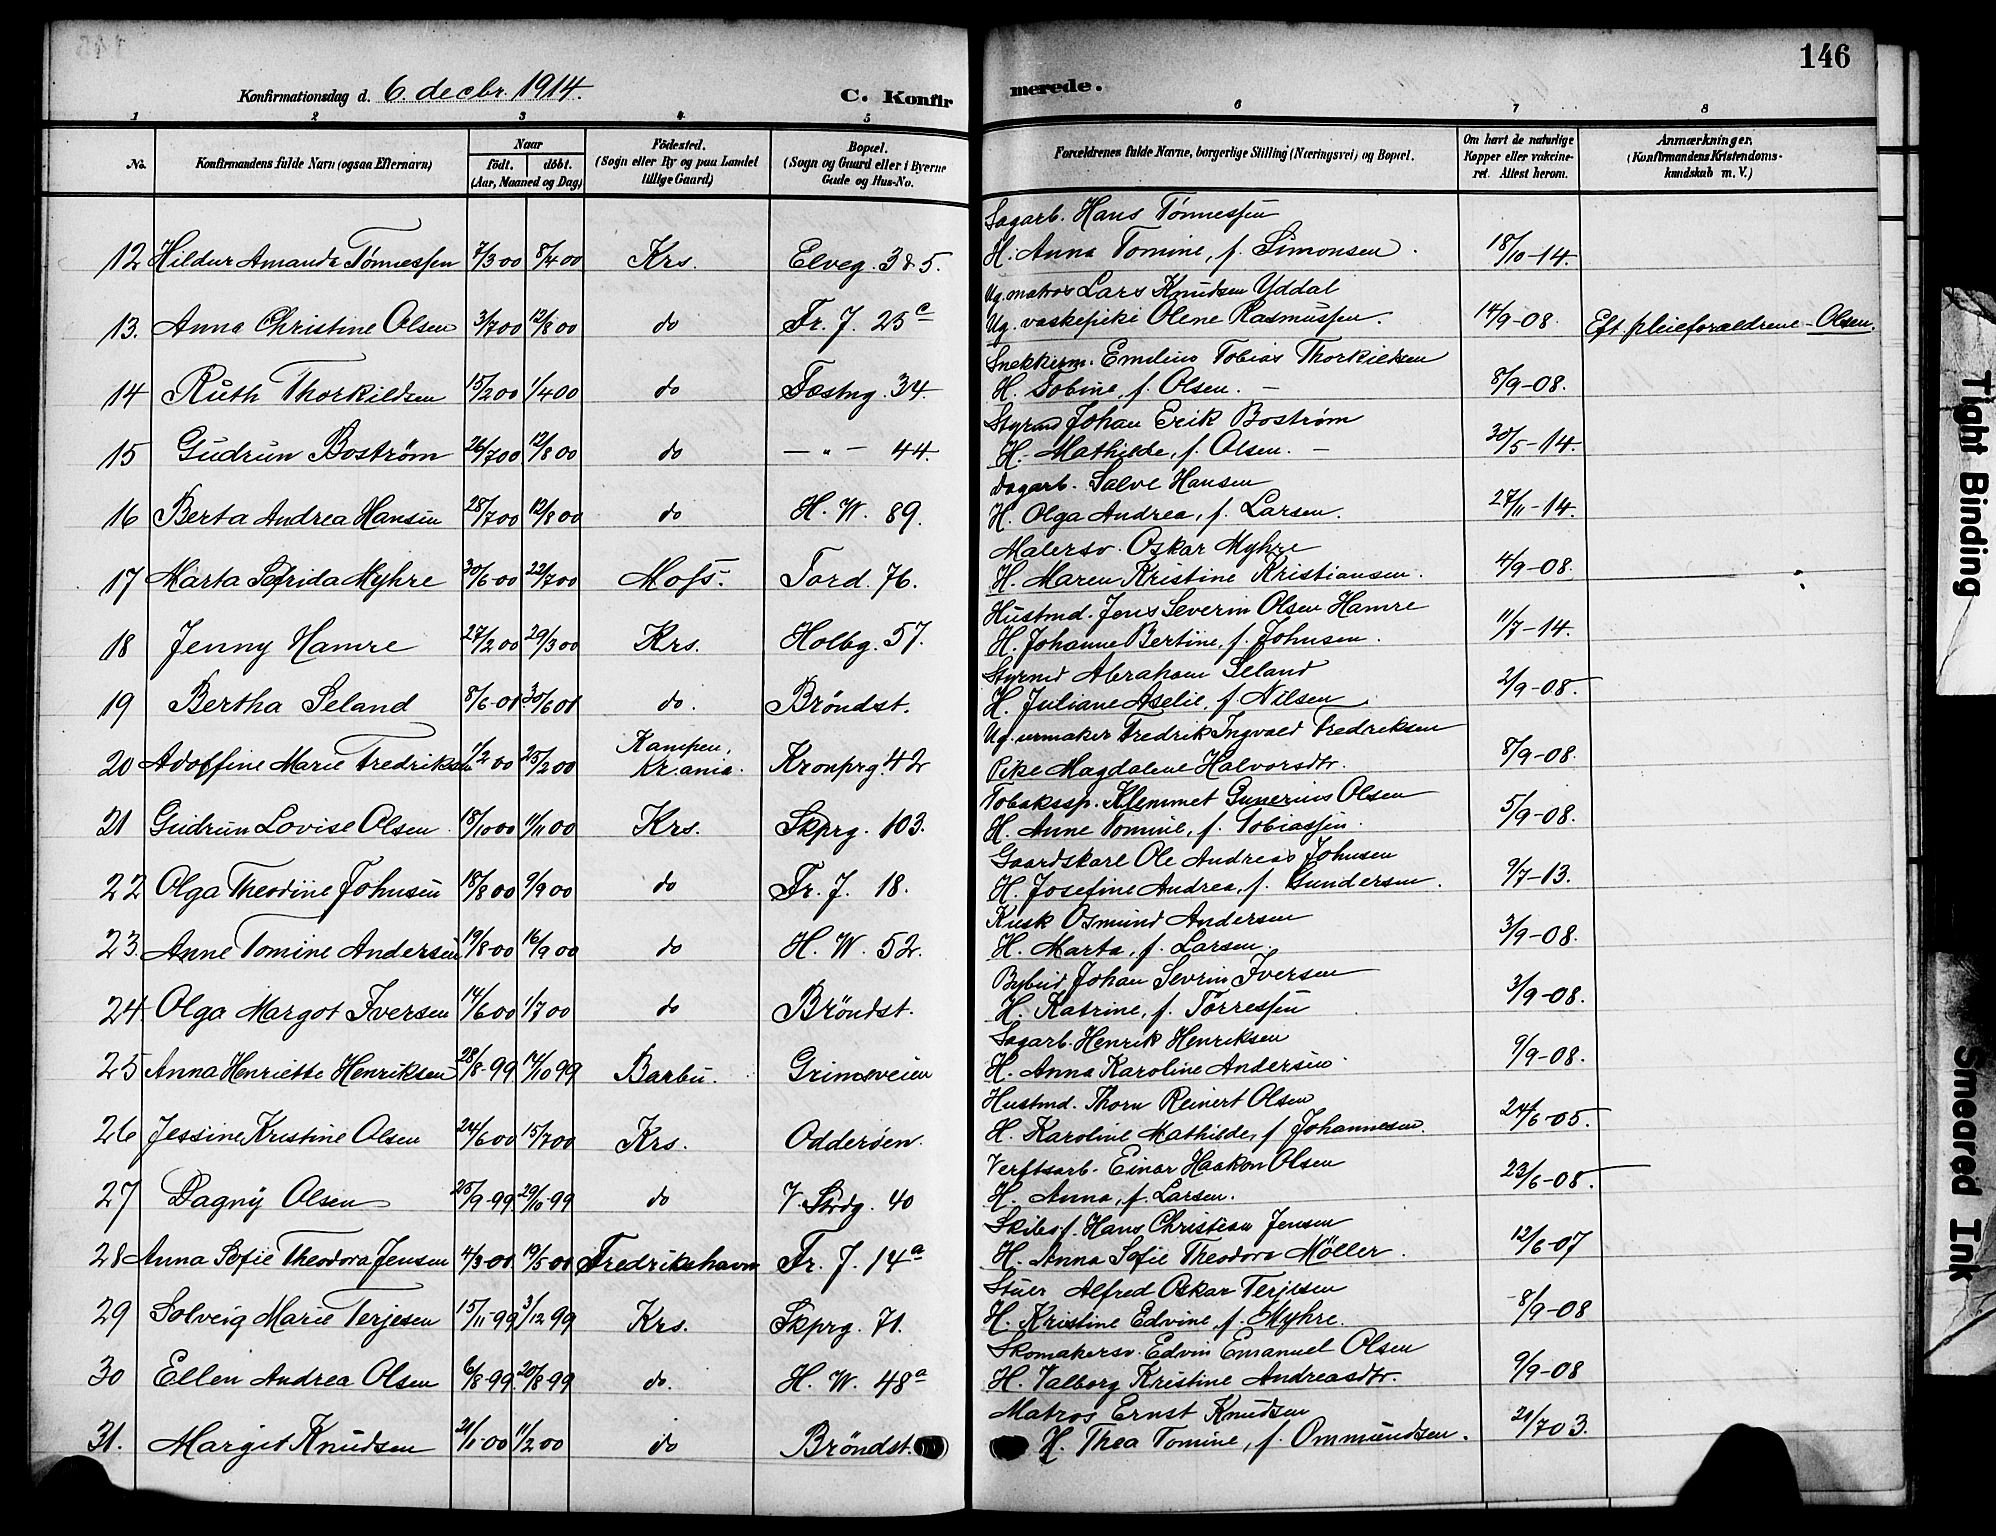 146
Konfirmationsdag d. 6. decbr. 1914.
C. Konfirmerede.
1 2 3 4 5 6 7 8
No. Konfirmandens fulde Navn (ogsaa Efternavn) Naar født. døbt. (Aar, Maaned og Dag) Fødested. (Sogn eller By og paa Landet tillige Gaard) Bopæl. (Sogn og Gaard eller i Byerne Gade og Hus-No. Forældrenes fulde Navne, borgerlige Stilling (Næringsvei) og Bopæl. Om havt de naturlige Kopper eller vakcineret. Attest herom. Anmærkninger. (Konfirmandens Kristendomskundskab m. V.)
Sagarb. Hans Tønnessen
12 Hildur Amanda Tønnessen 7/3 00 8/4 00 Krs. Elveg. 3 & 5. H. Anna Tomine, f. Simonsen. 18/10-14.
Ug. matros Lars Knudsen Yddal
13. Anna Christine Olsen 3/7 00 12/8 00 do Fr. J. 25c Ug. vaskepike Olene Rasmussen. 14/9-08. Eft. pleieforældrene - Olsen.
Snekkerm. Emilius Tobias Thorkildsen
14 Ruth Thorkildsen 15/2 00 1/4 00 do Fæstng. 34. H. Tobine, f. Olsen. - 8/9-08.
Styrmd Johan Erik Bostrøm
15 Gudrun Bostrøm 26/7 00 12/8 00 do - " - 44. H. Mathilde, f. Olsen. - 30/5-14.
Dagarb. Salve Hansen
16 Berta Andrea Hansen 28/7 00 12/8 00 do H. W. 89. H. Olga Andrea, f. Larsen. 27/11-14.
Malersv. Oskar Myhre
17 Marta Sofrida Myhre 30/6 00 22/7 00 Moss. Tord. 76. H. Maren Kristine Kristiansen. 4/9-08.
Hustmd. Jens Severin Olsen Hamre
18 Jenny Hamre 27/2 00 29/3 00 Krs. Holbg. 57. H. Johanne Bertine, f. Johnsen. 11/7-14.
Styrmd Abraham Seland
19 Bertha Seland 8/6-01 30/6 01 do. Brøndst. H. Juliane Aselie, f. Nilsen 2/9-08.
Ug. urmaker Fredrik Ingvald Fredriksen
20 Adolfine Marie Fredriksen 1/2 00 25/2 00 Kampen, Kr.ania. Kronprg. 42 Pike Magdalene Halvorsdtr. 8/9-08.
Tobakssp. Klemmet Gunerius Olsen
21 Gudrun Lovise Olsen 18/10 00 11/11 00 Krs. Skprg. 103. H. Anne Tomine, f. Tobiassen. 5/9-08.
Gaardskarl Ole Andreas Johnsen
22 Olga Theodine Johnsen 18/8 00 9/9 00 do Fr. J. 18. H. Josefine Andrea, f. Gundersen. 9/7-13.
Kusk Osmund Andersen
23. Anne Tomine Andersen 19/8 00 16/9 00 do H. W. 52. H. Marta, f. Larsen. 3/9-08.
Bybud Johan Sevrin Iversen
24. Olga Margot Iversen 14/6 00 1/7 00 do Brøndst. H. Katrine, f. Tørressen 3/9-08.
Sagarb. Henrik Henriksen
25 Anna Henriette Henriksen 28/8-99 14/10 99 Barbu. Grimsveien H. Anna Karoline Andersen 9/9-08.
Hustmd. Thorn Reinert Olsen
26 Jessine Kristine Olsen 24/6 00 15/7 00 Krs. Odderøen. H. Karoline Mathilde, f. Johannesen. 24/6-05.
Verftsarb. Einar Haakon Olsen
27 Dagny Olsen 25/9-99 29/10-99 do V. Strdg. 40 H. Anna, f. Larsen. 23/6-08.
Skibsf. Hans Christian Jensen
28 Anna Sofie Theodora Jensen 4/3-00 19/5 00 Fredrikshavn Fr. J. 14a H. Anna Sofie Theodora Møller. 12/6-07
Stuer Alfred Oskar Terjesen
29 Solveig Marie Terjesen 15/11-99 3/12 99 Krs. Skprg. 71. H. Kristine Edvine, f. Myhre. 8/9-08
Skomakersv. Edvin Emanuel Olsen
30 Ellen Andrea Olsen 6/8-99 20/8-99 do. H. W. 48a H. Valborg Kristine Andreasdtr. 9/9-08
Matros Ernst Knudsen
31. Margit Knudsen 21/1-00 11/2 00 do Brøndst. H. Thea Tomine, f. Ommundsen. 21/7 03.
Tight Binding
Smeared Ink